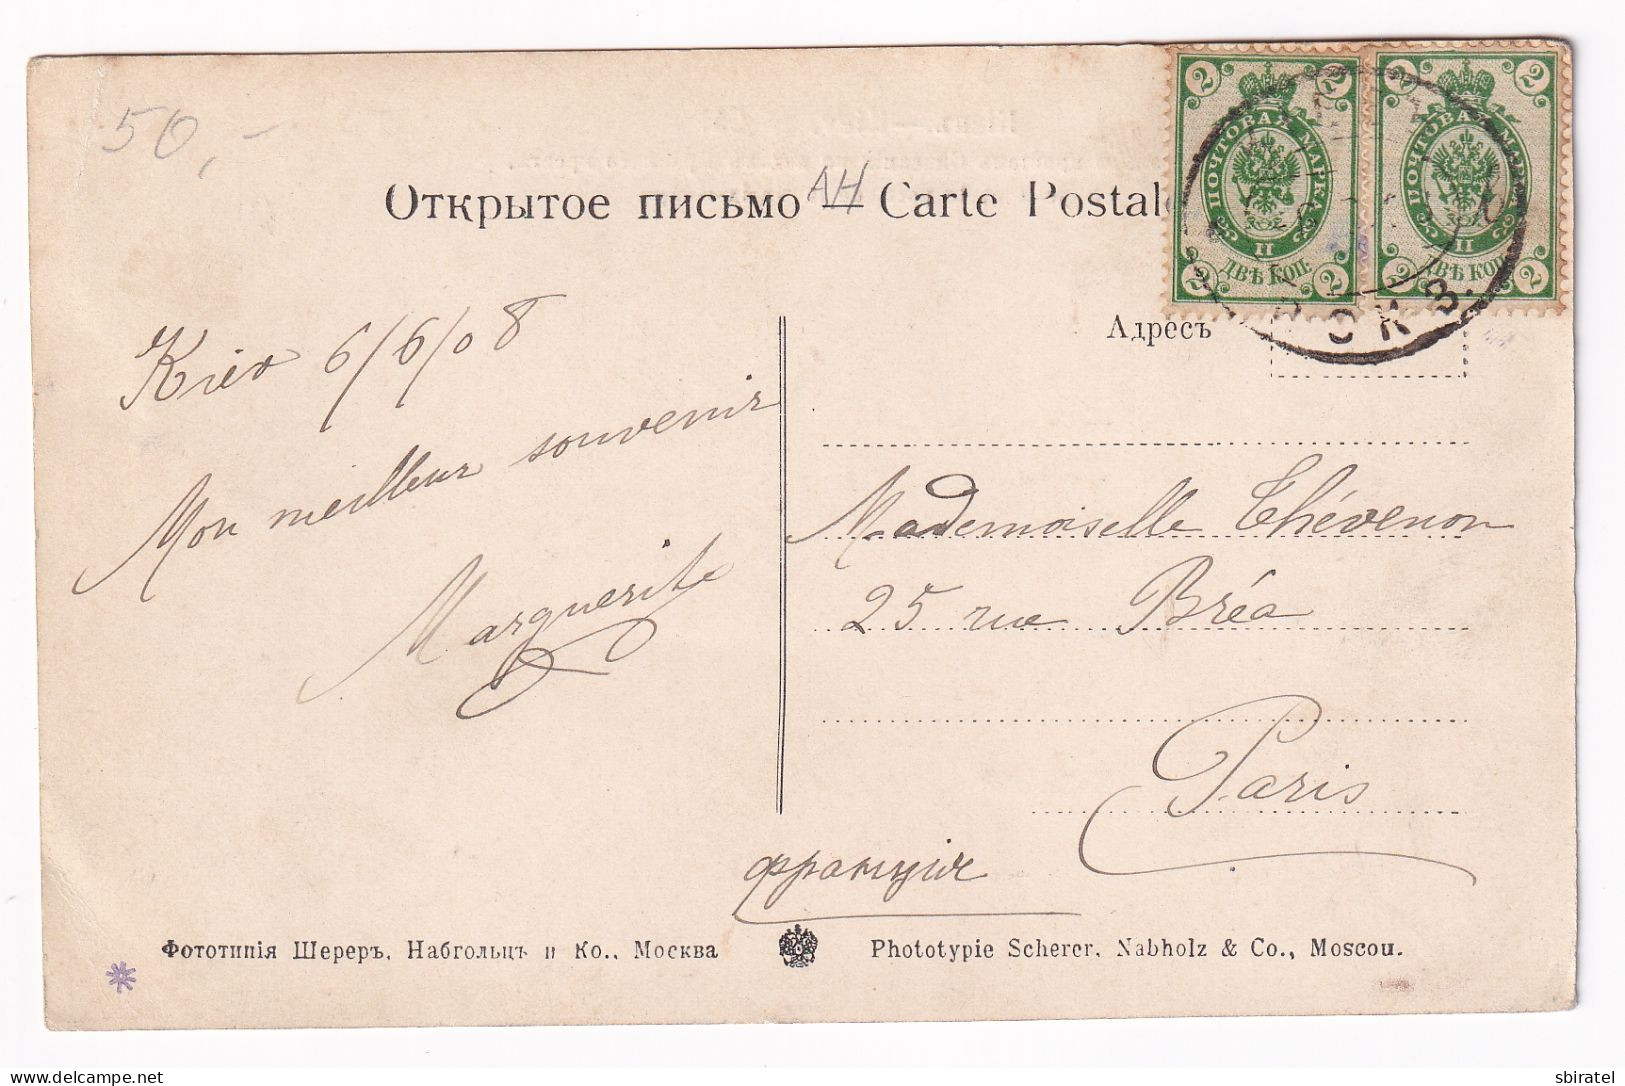 50,-
Открытое письмо — Carte Postale
АН
2 2 2 2
ПОЧТОВАЯ МАРКА
II
ДВѢ КОП.
2 2 2 2
ПОЧТОВАЯ МАРКА
II
ДВѢ КОП.
Адресъ
Kiev 6/6/08
Mon meilleur souvenir
Marguerite
Mademoiselle Thévenon
25 rue Bréa
Paris
Франція
Фототипія Шереръ, Набгольцъ и Ко., Москва
Phototypie Scherer, Nabholz & Co., Moscou.
sbiratel